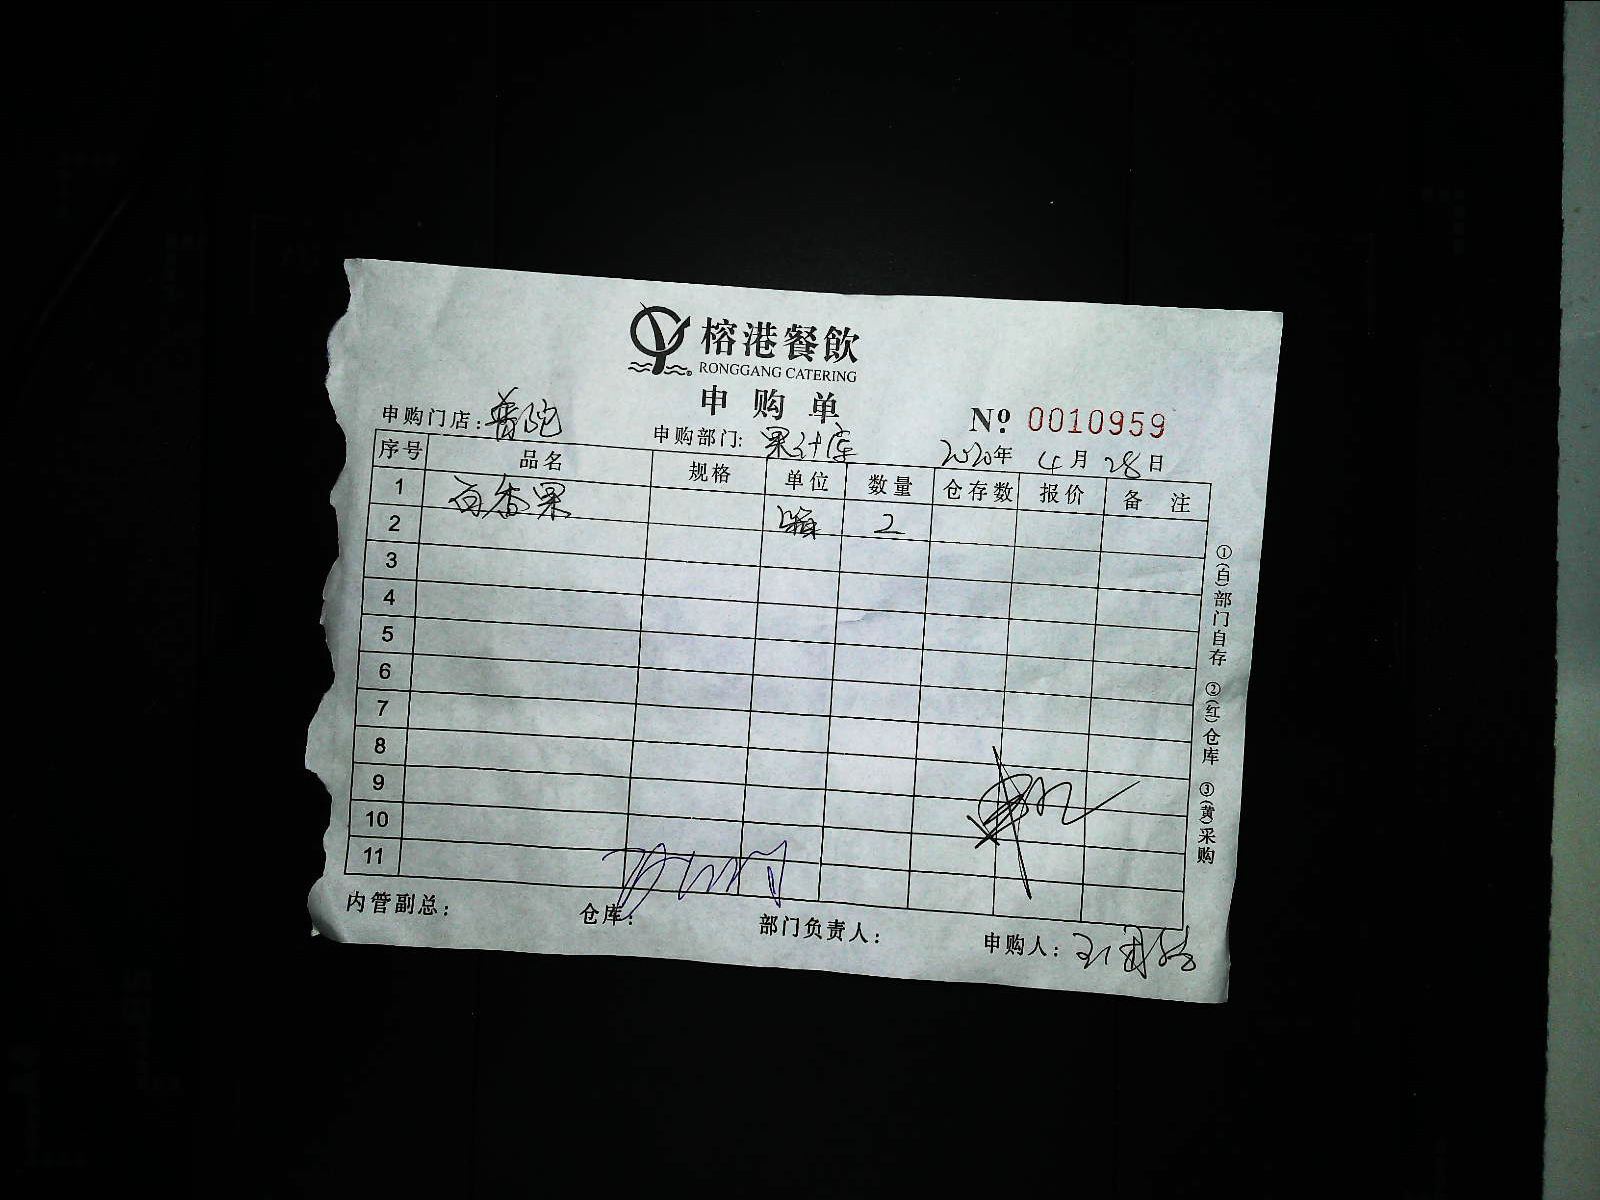 榕港餐飲
RONGGANG CATERING
申购单
申购门店：普陀
申购部门：果汁房
№ 0010959
2020年 4月 28日
序号 品名 规格 单位 数量 仓存数 报价 备注
1 百香果 箱 2
2
3
4
5
6
7
8
9
10
11
①(白)部门自存 ②(红)仓库 ③(黄)采购
内管副总： 仓库： 部门负责人： 申购人：